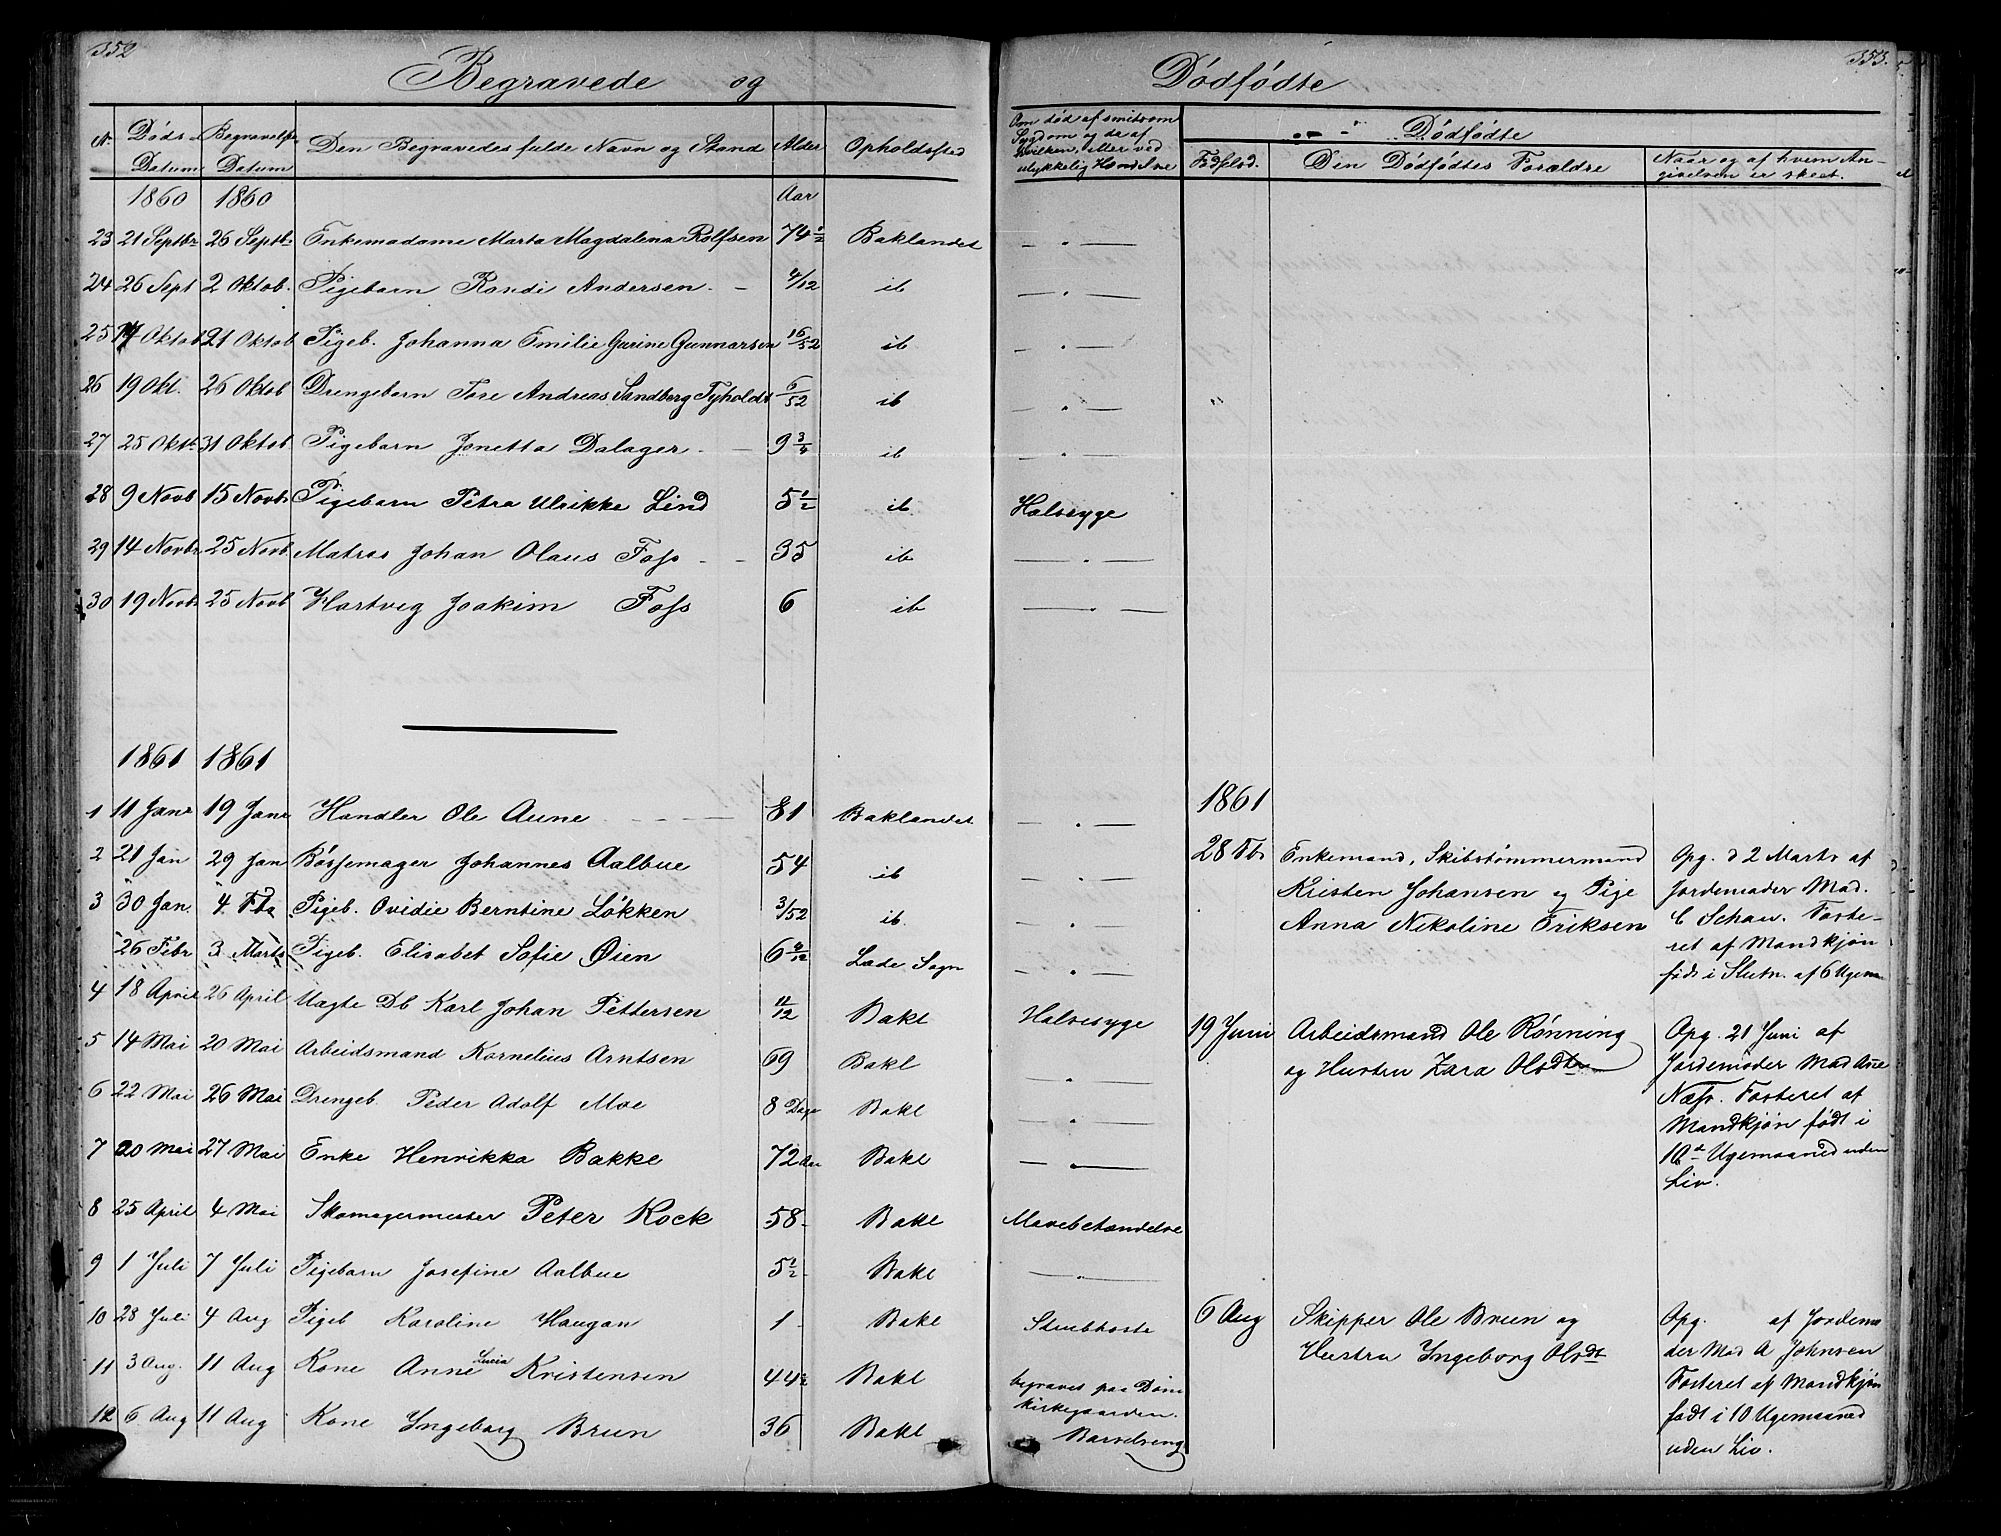 352
Begravede og
N.
Døds Datum
Begravelses Datum
Den Begravedes fulde Navn og Stand
Alder
Opholdssted
1860 1860 Aar
23 21 Septbr 26 Septbr Enkemadame Marta Magdalena Rolfsen 74 1/2 Baklandet
24 26 Sept 2 Oktob. Pigebarn Randi Andersen 4/12 ib
25 Oktob 21 Oktob Pigeb. Johanna Emilie Gurine Gunnarsen 16/52 ib
26 19 Okt. 26 Oktob Drengebarn Tore Andreas Sandberg Tyholdt 6/52 ib
27 25 Oktb 31 Oktob Pigebarn Jonetta Dalager 9 3/4 ib
28 9 Novb 15 Novbr Pigebarn Petra Ulrikke Lind 5 1/2 ib
29 14 Novbr 25 Novb. Matros Johan Olaus Foss 35 ib
30 19 Novbr 25 Novb Hartvig Joakim Foss 6 ib
1861 1861
1 11 Janr 19 Janr Handler Ole Aune 81 Baklandet
2 21 Jan 29 Jan Bøssemager Johannes Aalbue 54 ib
3 30 Jan. 4 Fb Pigeb. Ovidie Berntine Løkken 3/52 ib.
26 Febr 3 Marts Pigeb. Elisabet Sofie Øien 6 9/12 Lade Sogn
4 18 April 26 April Uægte Db Karl Johan Pettersen 11/12 Bakl
5 14 Mai 20 Mai Arbeidsmand Kornelius Arntsen 69 Bakl
6 22 Mai 26 Mai Drengeb. Peder Adolf Moe 8 Dage Bakl
7 20 Mai 27 Mai Enke Henrikka Bakke 72 Aar Bakl
8 25 April 4 Mai Skomagermester Peter Kock 58 Bakl
9 1 Juli 7 Juli Pigebarn Josefine Aalbue 5 1/2 Bakl
10 28 Juli 4 Aug Pigeb Karoline Haugan 1 Bakl
11 3 Aug. 11 Aug Kone Anne Lucia Kristensen 44 1/2 Bakl
12 6 Aug 11 Aug Kone Ingeborg Brun 36 Bakl
353.
Dødfødte
Om død af smitsom
Sygdom og da af
hvilken, eller ved
ulykkelig Hændelse
Dødfødte
Fødselsd.
Den Dødfødtes Forældre
Naar og af hvem An-
givelsen er skeet.
Halsesyge
1861
28 Fb Enkemand, Skibstømmermand
Kristen Johansen og Pige
Anna Nikoline Eriksen
Opg. d 2 Marts af
Jordemoder Mad.
C Schau. Foste-
ret af Mandkjøn
født i Slutn. af 6 Ugem
Halsesyge
19 Juni Arbeidsmand Ole Rønning
og Hustru Zara Olsdtr
Opg. 21 Juni af
Jordemoder Mad Ane
Næss. Fosteret af
Mandkjøn født i
10de Ugemaaned uden
Liv.
Mavebetændelse
Strubhoste
begravet paa Dom
kirkegaarden.
Barselseng
6 Aug Skipper Ole Brun og
Hustru Ingeborg Olsdt
Opg. af Jordemo
der Mad A Johnsen
Fosteret af Mandkjøn
født i 10 Ugemaaned
uden Liv.